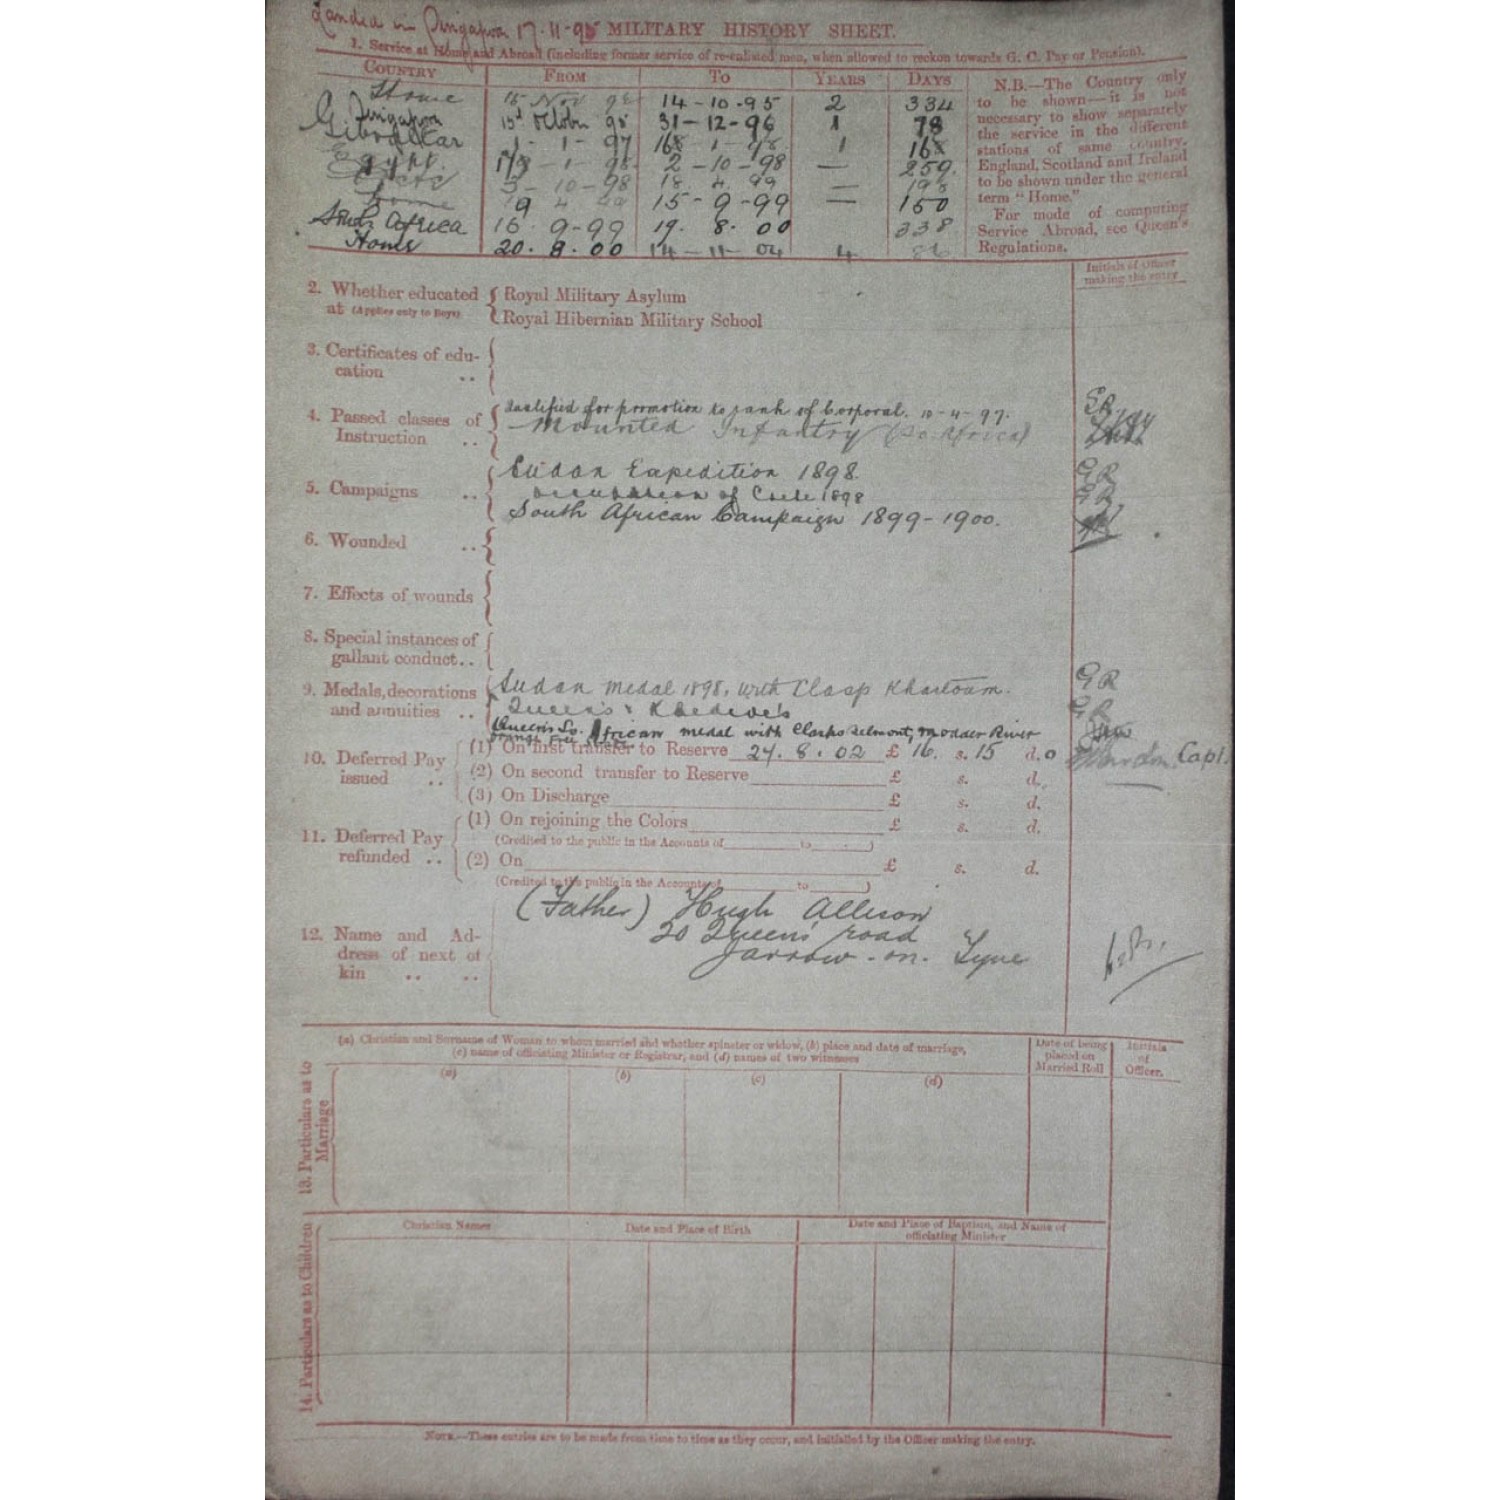 Landed in Singapore 17-11-95 MILITARY HISTORY SHEET.
1. Service at Home and Abroad (including former service of re-enlisted men, when allowed to reckon towards G. C. Pay or Pension).
COUNTRY FROM TO YEARS DAYS
Home 15 Nov 14-10-95 2 334
Singapore 15th October 95 31-12-96 1 78
Gibraltar 1-1-97 1 16
Egypt 1-98 2-10-98 — 259
Crete 3-10-98 18. 4. 99 — 198
Home 19 4 99 15-9-99 — 150
South Africa 16. 9-99 19. 8. 00 338
Home 20. 8. 00 14-11-04 4 86
N.B.—The Country only
to be shown—it is not
necessary to show separately
the service in the different
stations of same country.
England, Scotland and Ireland
to be shown under the general
term "Home."
For mode of computing
Service Abroad, see Queen's
Regulations.
Initials of Officer
making the entry
2. Whether educated Royal Military Asylum
at (Applies only to Boys) Royal Hibernian Military School
3. Certificates of edu-
cation ..
4. Passed classes of Qualified for promotion to rank of Corporal. 10-4-97.
Instruction .. Mounted Infantry (So. Africa)
5. Campaigns .. Sudan Expedition 1898. GR
Occupation of Crete 1898 GR
South African Campaign 1899-1900.
6. Wounded ..
7. Effects of wounds
8. Special instances of
gallant conduct..
9. Medals, decorations Sudan Medal 1898, with Clasp Khartoum. GR
and annuities .. Queen's & Khedive's GR
Queen's So. African medal with Clasps Belmont, Modder River
Orange Free State
10. Deferred Pay (1) On first transfer to Reserve 24. 8. 02 £ 16. s. 15 d. 0 Capt.
issued .. (2) On second transfer to Reserve £ s. d.
(3) On Discharge £ s. d.
11. Deferred Pay (1) On rejoining the Colors £ s. d.
refunded .. (Credited to the public in the Accounts of to )
(2) On £ s. d.
(Credited to the public in the Accounts of to )
12. Name and Ad- (Father) Hugh Allison
dress of next of 20 Queen's road
kin .. .. Jarrow-on-Tyne
13. Particulars as to Marriage
(a) Christian and Surname of Woman to whom married and whether spinster or widow, (b) place and date of marriage,
(c) name of officiating Minister or Registrar, and (d) names of two witnesses
Date of being
placed on
Married Roll
Initials
of
Officer.
(a) (b) (c) (d)
14. Particulars as to Children
Christian Names Date and Place of Birth Date and Place of Baptism, and Name of
officiating Minister
NOTE.—These entries are to be made from time to time as they occur, and initialled by the Officer making the entry.